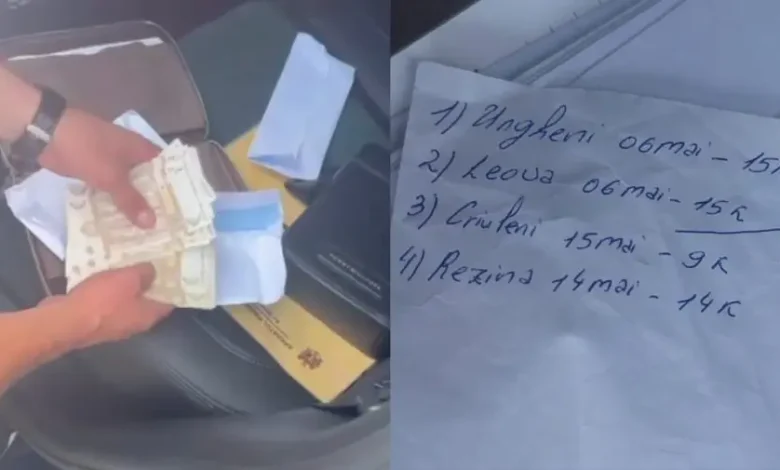 1) Ungheni 06mai - 15k
2) Leova 06mai - 15k
3) Criuleni 15mai - 9k
4) Rezina 14mai - 14k